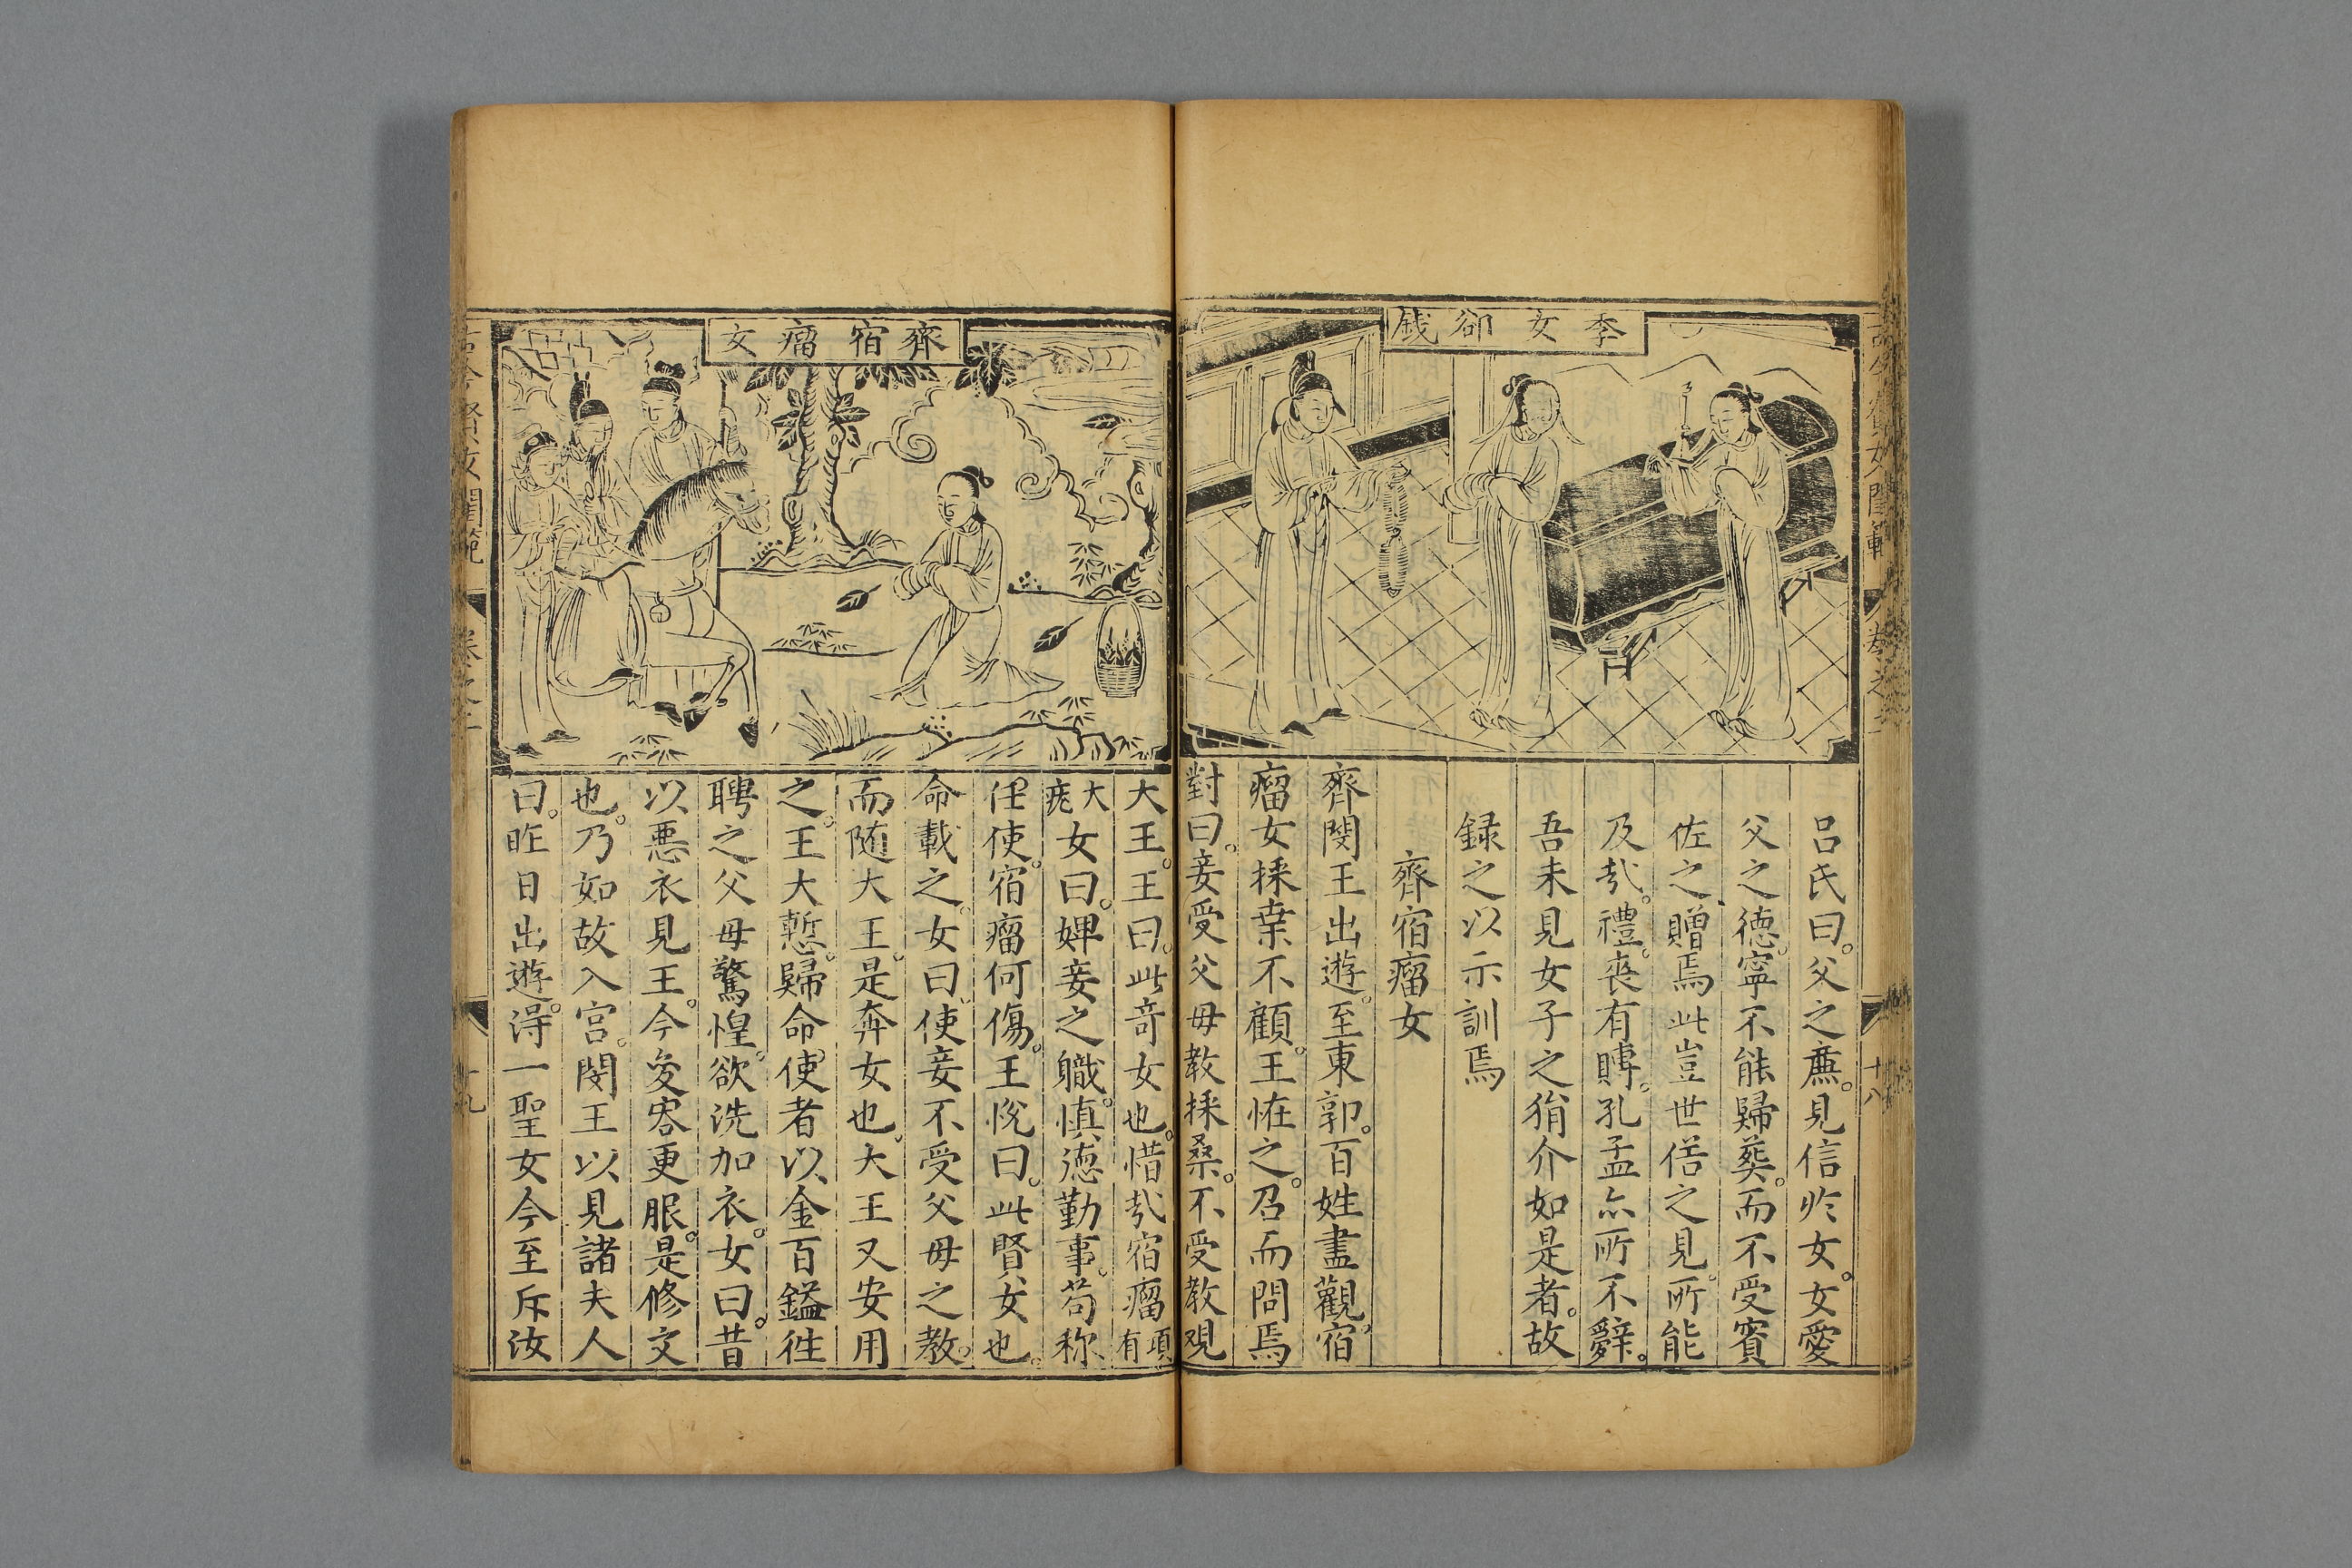 李女卻錢
呂氏曰。父之亷。見信於女。女愛
父之德。寧不能歸葬。而不受賓
佐之贈焉此豈世俗之見。所能
及㢤。禮。喪有賻。孔孟亦所不辭。
吾未見女子之狷介如是者。故
録之以示訓焉
齊宿瘤女
齊閔王出遊。至東郭。百姓盡觀。宿
瘤女採桒不顧。王恠之。召而問焉
對曰。妾受父母教採桑。不受教覌
十八
齊宿瘤女
大王。王曰。此竒女也。惜㢤宿瘤項有
大疣女曰。婢妾之職。慎德勤事。苟称
任使。宿瘤何傷。王悅曰。此賢女也。
命載之。女曰。使妾不受父母之教。
而随大王。是奔女也。大王又安用
之。王大慙。歸命使者以金百鎰徃
聘之父母驚惶。欲洗加衣。女曰。昔
以惡衣見王。今变容更服。是修文
也。乃如故入宫。閔王以見諸夫人
曰。昨日出遊。淂一聖女今至斥汝
古今賢女閨範
卷之二
十九